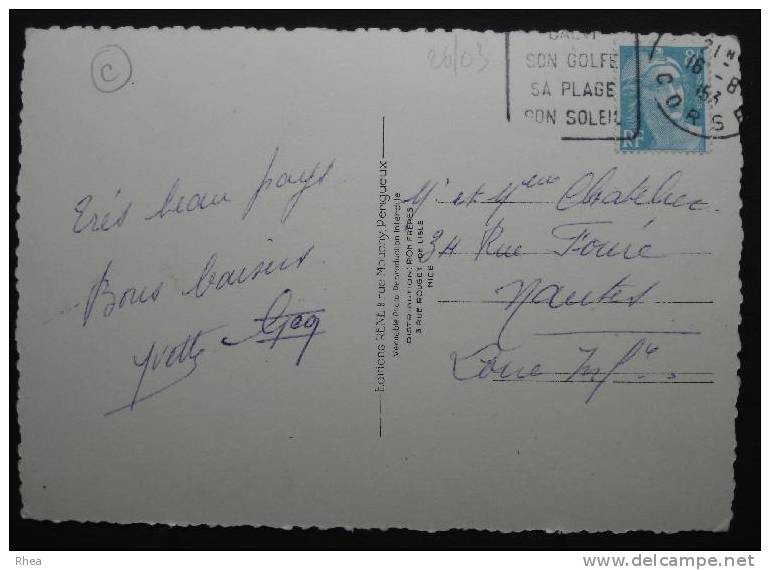 C
26/03
SON GOLFE
SA PLAGE
SON SOLEIL
21H
16-8
CORSE
RF
Très beau pays
Bons baisers
Yvette
Editions RENE 8 rue Mourny, Périgueux
Véritable Photo Reproduction Interdite
DISTRIBUTION: RION FRÈRES
3 RUE ROUGET DE LISLE
NICE
Mr et Mme
Rue Fouré
Nantes
Loire Infre
Rhea
delcampe.net